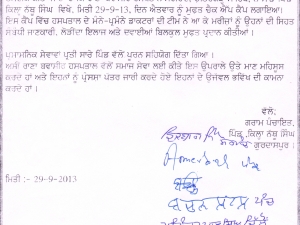 ਕਿਲਾ ਨੱਥੂ ਸਿੰਘ ਵਿਖੇ, ਮਿਤੀ 29-9-13, ਦਿਨ ਐਤਵਾਰ ਨੂੰ ਮੁਫਤ ਚੈਕ ਅੱਪ ਕੈਂਪ ਲਗਾਇਆ।
ਇਸ ਕੈਂਪ ਵਿੱਚ ਹਸਪਤਾਲ ਦੇ ਮੰਨੇ-ਪ੍ਰਮੰਨੇ ਡਾਕਟਰਾਂ ਦੀ ਟੀਮ ਨੇ ਆ ਕੇ ਮਰੀਜਾਂ ਨੂੰ ਉਹਨਾਂ ਦੀ ਸਿਹਤ
ਸਬੰਧੀ ਜਾਣਕਾਰੀ, ਲੋੜੀਦਾ ਇਲਾਜ ਅਤੇ ਦਵਾਈਆਂ ਬਿਲਕੁਲ ਮੁਫਤ ਪ੍ਰਦਾਨ ਕੀਤੀਆਂ।
ਪ੍ਰਸ਼ਾਸਨਿਕ ਸੇਵਾਵਾਂ ਪ੍ਰਤੀ ਸਾਰੇ ਪਿੰਡ ਵੱਲੋਂ ਪੂਰਨ ਸਹਿਯੋਗ ਦਿੱਤਾ ਗਿਆ।
ਅਸੀਂ ਰਾਣਾ ਹਸਪਤਾਲ ਵੱਲੋਂ ਸਮਾਜ ਸੇਵਾ ਲਈ ਕੀਤੇ ਇਸ ਉਪਰਾਲੇ ਉਤੇ ਮਾਣ ਮਹਿਸੂਸ
ਕਰਦੇ ਹਾਂ ਅਤੇ ਇਹਨਾਂ ਨੂੰ ਪ੍ਰਸੰਸਾ ਪੱਤਰ ਜਾਰੀ ਕਰਦੇ ਹੋਏ ਇਹਨਾਂ ਦੇ ਉਜਵਲ ਭਵਿੱਖ ਦੀ ਕਾਮਨਾ
ਕਰਦੇ ਹਾਂ।
ਵੱਲੋਂ:
ਗਰਾਮ ਪੰਚਾਇਤ,
ਪਿੰਡ ਕਿਲਾ ਨੱਥੂ ਸਿੰਘ
ਗੁਰਦਾਸਪੁਰ।
ਮਿਤੀ:- 29-9-2013
ਪੰਚ